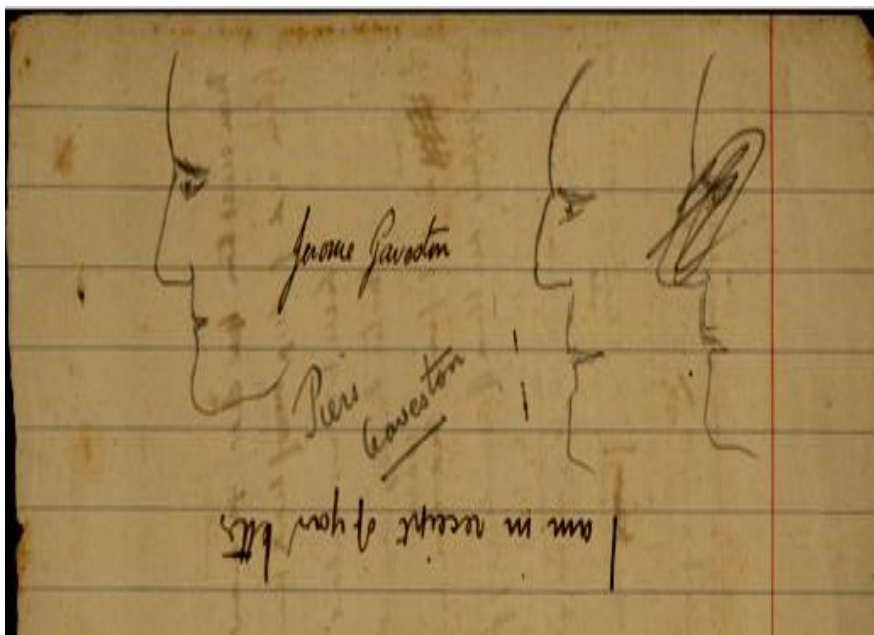 Jerome Gaveston
Piers
Gaveston
I am in receipt of your